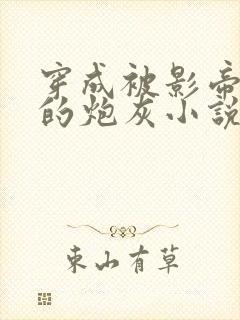 穿成被影帝
的炮灰小說
東山有草